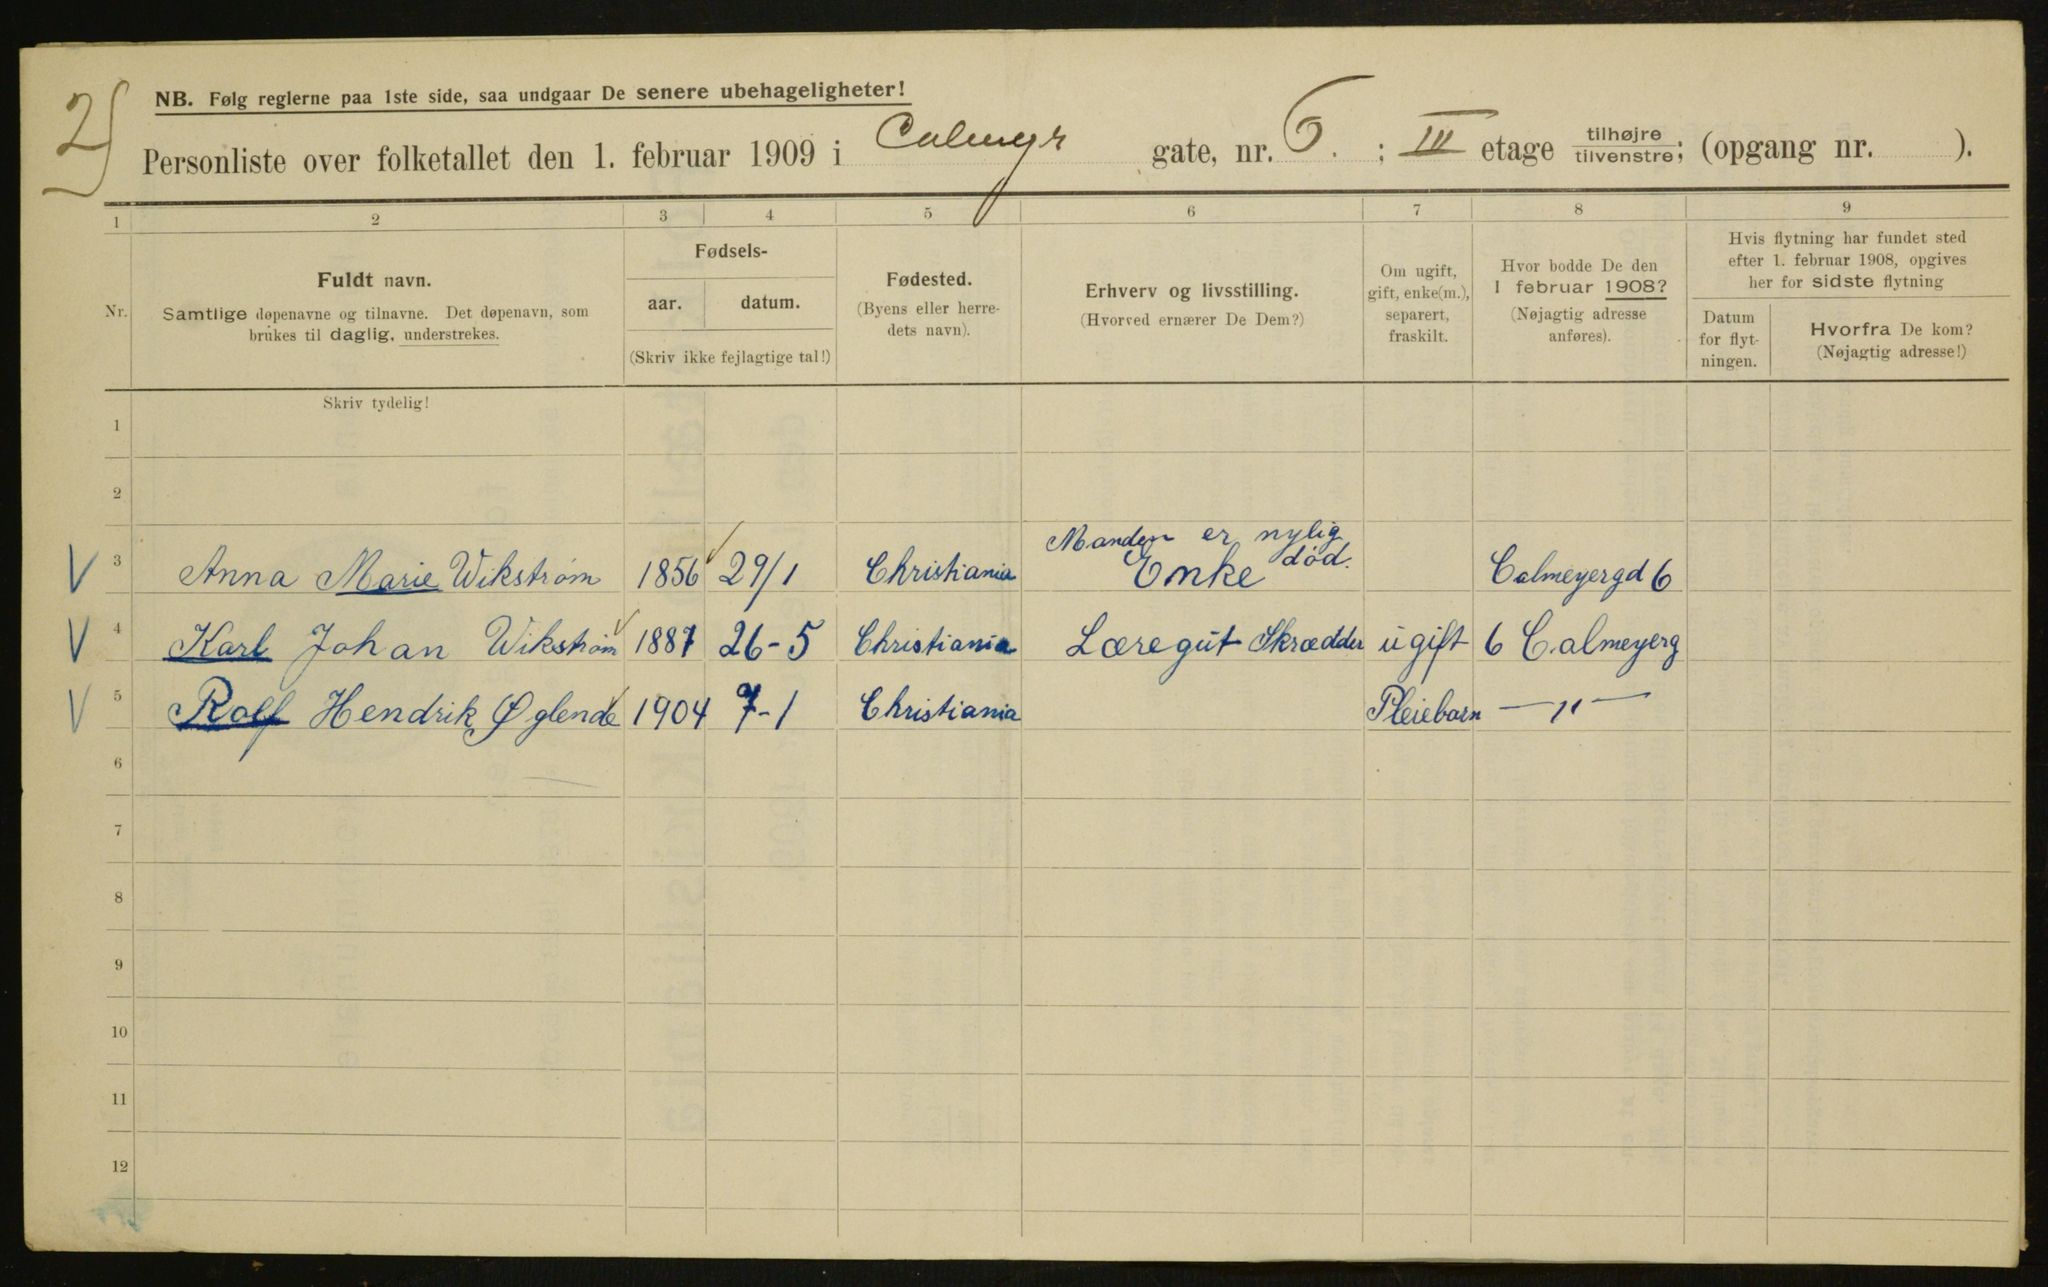 2)
NB. Følg reglerne paa 1ste side, saa undgaar De senere ubehageligheter!
Personliste over folketallet den 1. februar 1909 i Calmeyr gate, nr. 6. ; III etage tilhøjre / tilvenstre; (opgang nr. ).
1 2 3 4 5 6 7 8 9
Nr.
Fuldt navn.
Samtlige døpenavne og tilnavne. Det døpenavn, som
brukes til daglig, understrekes.
Fødsels-
aar. datum.
(Skriv ikke fejlagtige tal!)
Fødested.
(Byens eller herre-
dets navn).
Erhverv og livsstilling.
(Hvorved ernærer De Dem?)
Om ugift,
gift, enke(m.),
separert,
fraskilt.
Hvor bodde De den
1 februar 1908?
(Nøjagtig adresse
anføres).
Hvis flytning har fundet sted
efter 1. februar 1908, opgives
her for sidste flytning
Datum
for flyt-
ningen.
Hvorfra De kom?
(Nøjagtig adresse!)
Skriv tydelig!
1
2
Manden er nylig
død.
V 3 Anna Marie Wikstrøm 1856 29/1 Christiania Enke Calmeyergd 6
V 4 Karl Johan Wikstrøm 1887 26-5 Christiania Læregut Skrædder ugift 6 Calmeyerg
V 5 Rolf Hendrik Øglende 1904 7-1 Christiania Pleiebarn — " —
6
7
8
9
10
11
12